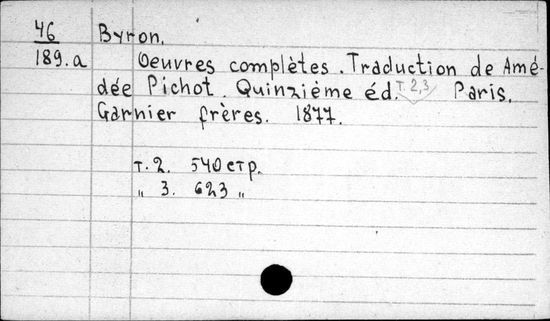 46 Byron.
189.a Oeuvres complètes. Traduction de Amé-
dée Pichot. Quinzième éd. т. 2,3 Paris,
Garnier frères. 1877.
т. 2. 540 стр.
„ 3. 623 „